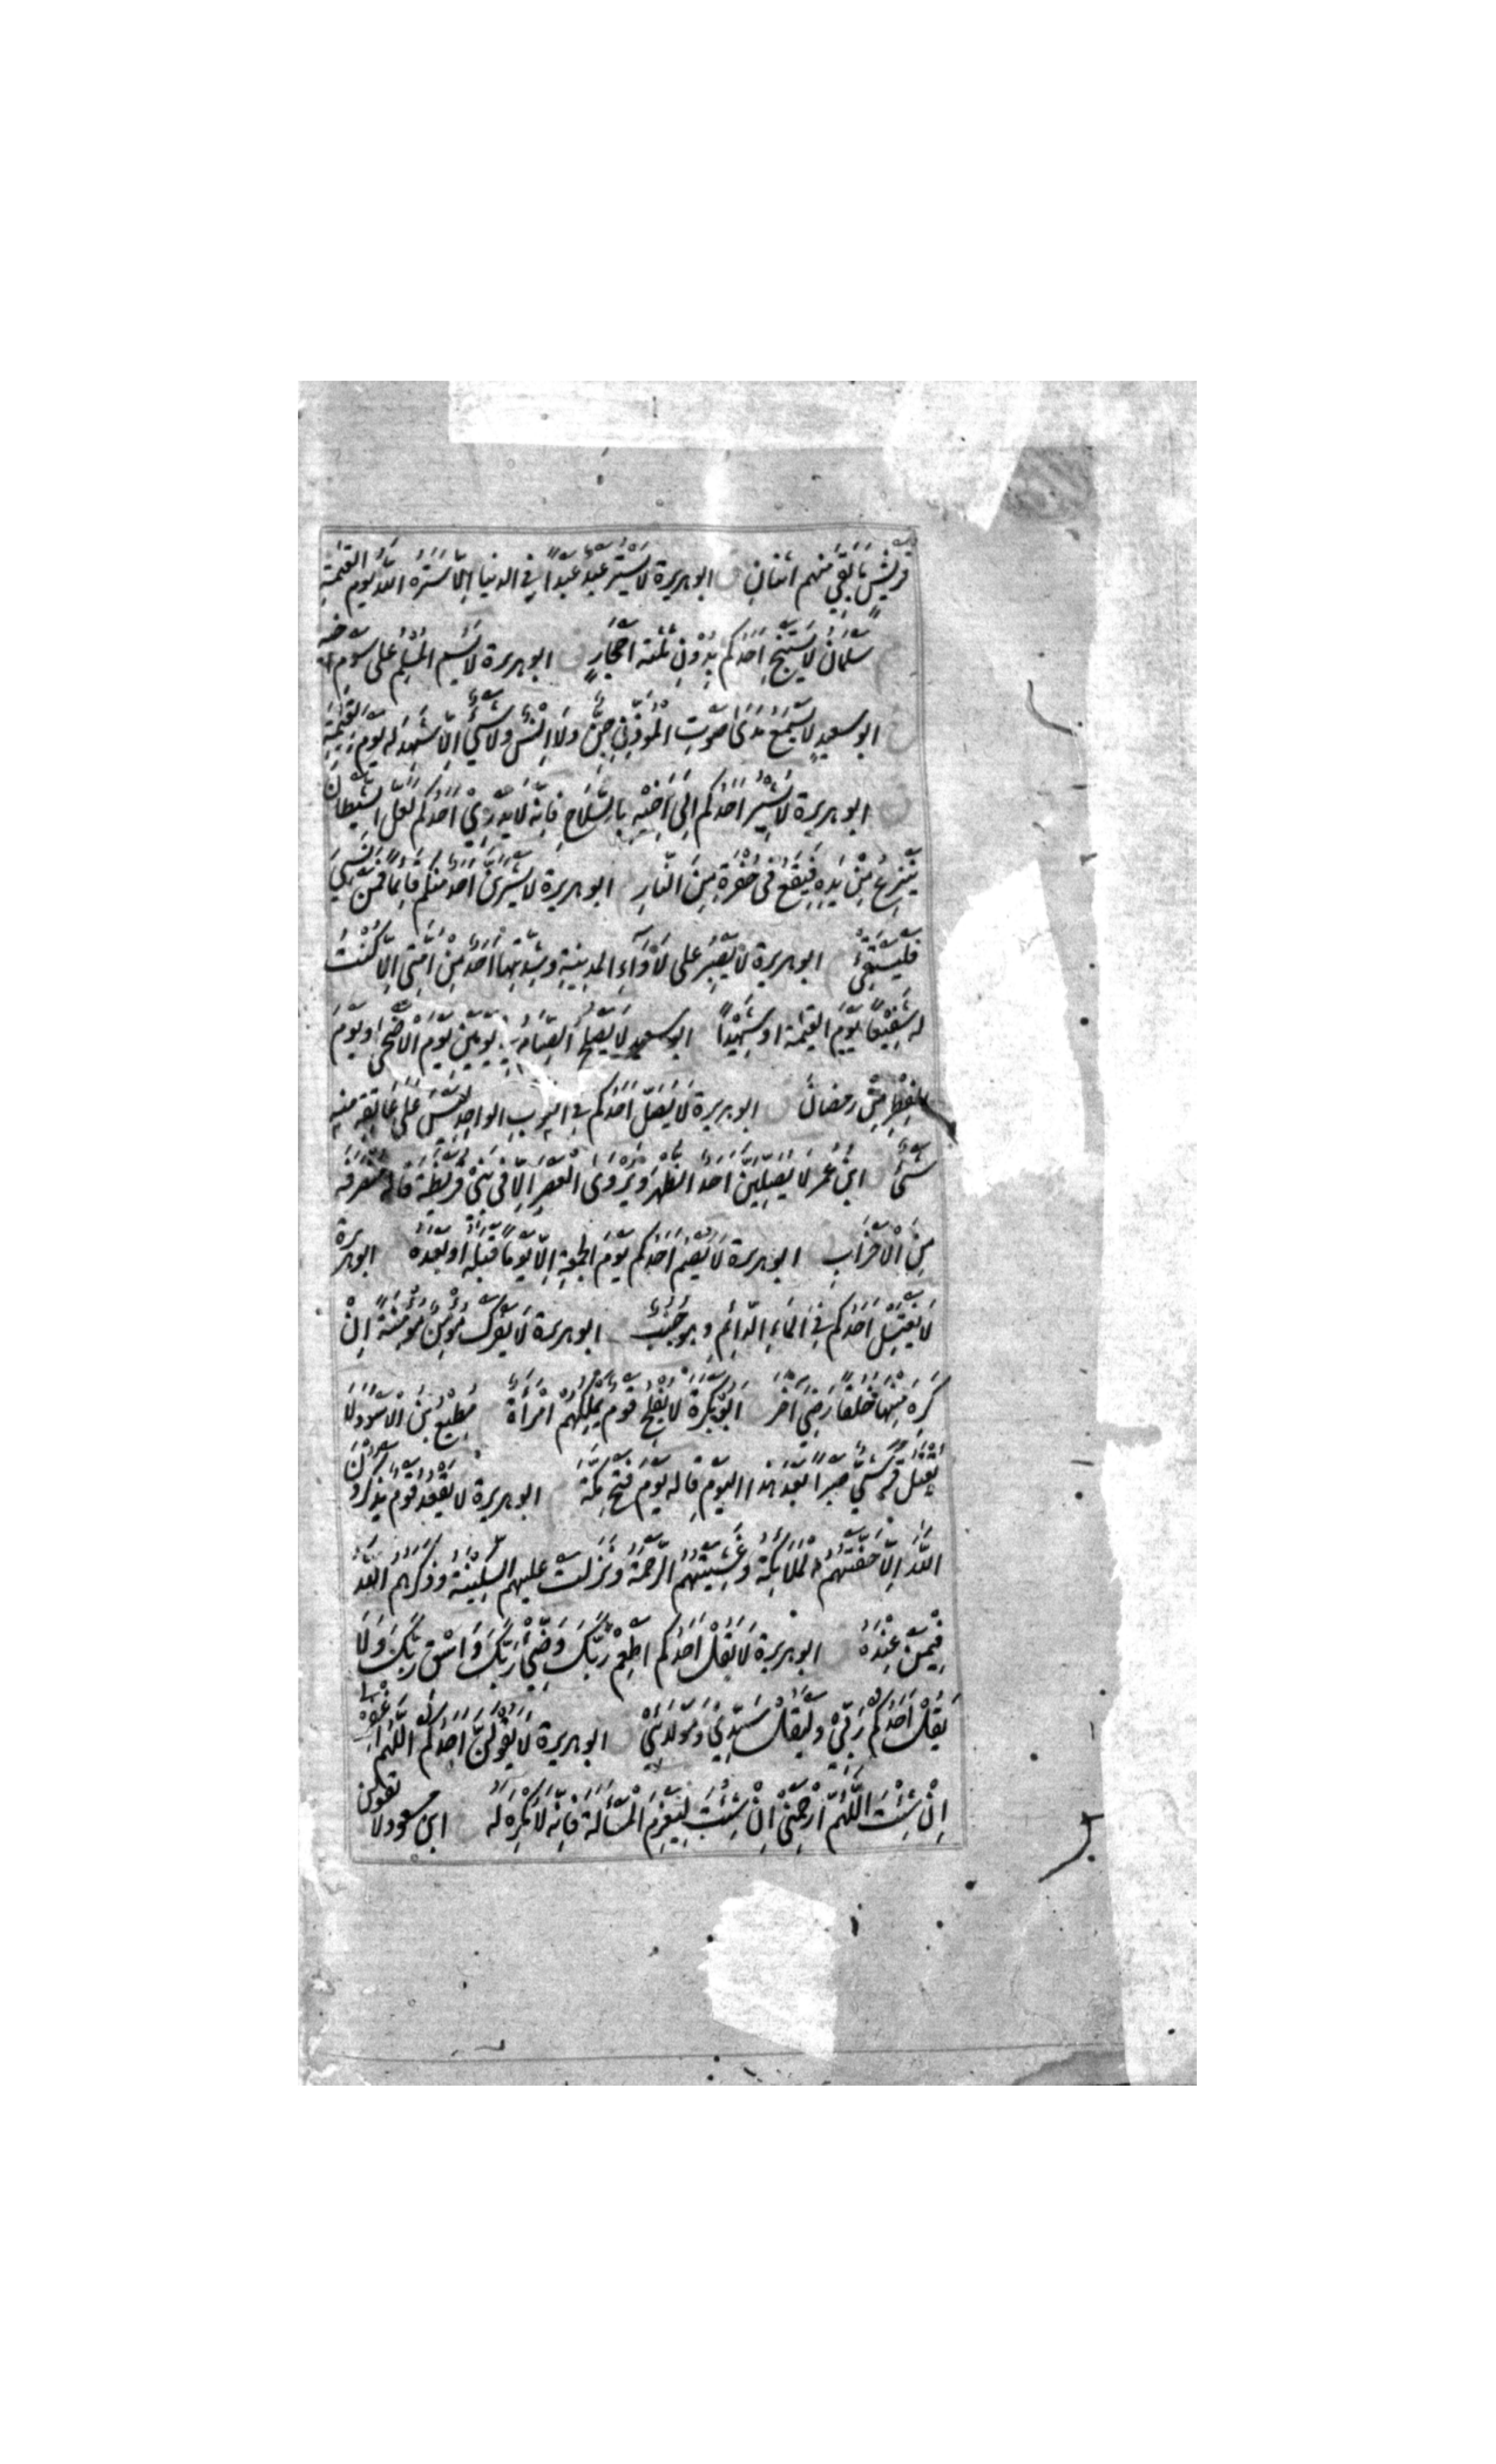 قريش ما بقي منهم اثنان ق ابو هريرة لا يستر عبد عبدا في الدنيا الا ستره الله يوم القيمة
سلمان لا يستنج احدكم بدون ثلثة احجار ق ابو هريرة لا يسم المسلم على سوم اخيه
ابو سعيد لا يسمع مدى صوت المؤذن جن ولا انس ولا شيء الا شهد له يوم القيمة
ق ابو هريرة لا يشير احدكم الى اخيه بالسلاح فانه لا يدري احدكم لعل الشيطان
ينزع من يده فيقع في حفرة من النار ابو هريرة لا يشربن احد منكم قائما فمن نسي
فليستقئ ابو هريرة لا يصبر على لأواء المدينة وشدتها احد من امتي الا كنت
له شفيعا يوم القيمة او شهيدا ابو سعيد لا يصلح الصيام في يومين يوم الاضحى ويوم
الفطر من رمضان ق ابو هريرة لا يصل احدكم في الثوب الواحد ليس على عاتقه منه
شئ ابن عمر لا يصلين احد الظهر ويروى العصر الا في بني قريظة قاله منصرفه
من الاحزاب ابو هريرة لا يصم احدكم يوم الجمعة الا يوما قبله او بعده ابو هريرة
لا يغتسل احدكم في الماء الدائم وهو جنب ابو هريرة لا يفرك مؤمن مؤمنة ان
كره منها خلقا رضي آخر ابو بكرة لا يفلح قوم يملكهم امرأة مطيع بن الاسود لا
يقتل قرشي صبرا بعد هذا اليوم قاله يوم فتح مكة ابو هريرة لا يقعد قوم يذكرون
الله الا حفتهم الملائكة وغشيتهم الرحمة ونزلت عليهم السكينة وذكرهم الله
فيمن عنده ق ابو هريرة لا يقل احدكم اطعم ربك وضئ ربك واسق ربك ولا
يقل احدكم ربي وليقل سيدي ومولائي ق ابو هريرة لا يقولن احدكم اللهم اغفر لي
ان شئت اللهم ارحمني ان شئت ليعزم المسألة فانه لا مكره له ق ابن مسعود لا يقولن